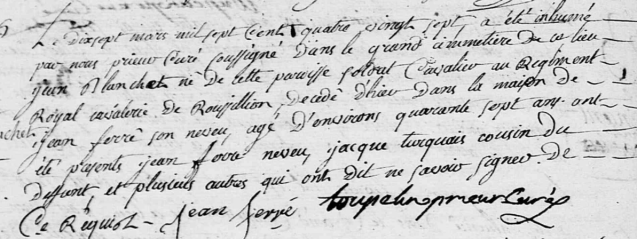 Le dixsept mars mil sept Cent quatre vingt sept a été inhumé
par nous prieur Curé soussigné dans le grand cimmetiere de ce lieu
jean Blanchet né de cette paroisse soldat Cavalier au Regiment
Royal cavalerie de Roussillion, decedé d'hier dans la maison de
jean ferré son neveu, agé d'environs quarante sept ans ont
été presents jean ferre neveu, jacque turquais cousin du
deffunt et plusieurs autres qui ont dit ne savoir signer de
Ce Réquis jean ferré prieur Curé